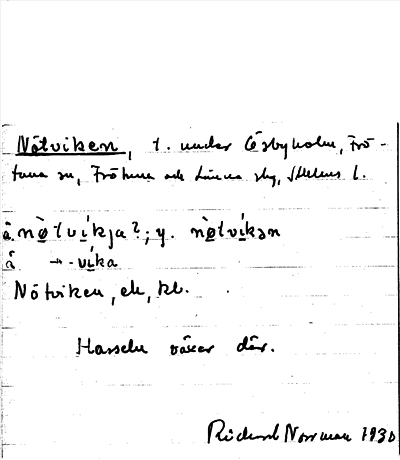 Nötviken, t. under Össbyholm, Frö-
tuna sn, Frötuna och Länna skg, Sthlms l.
ä. nø̀tvíkja?; y. nø̀tvíkən
ä → -víka
Nötviken, ek, kb.
Hasseln växer där.
Rickard Norrman 1930